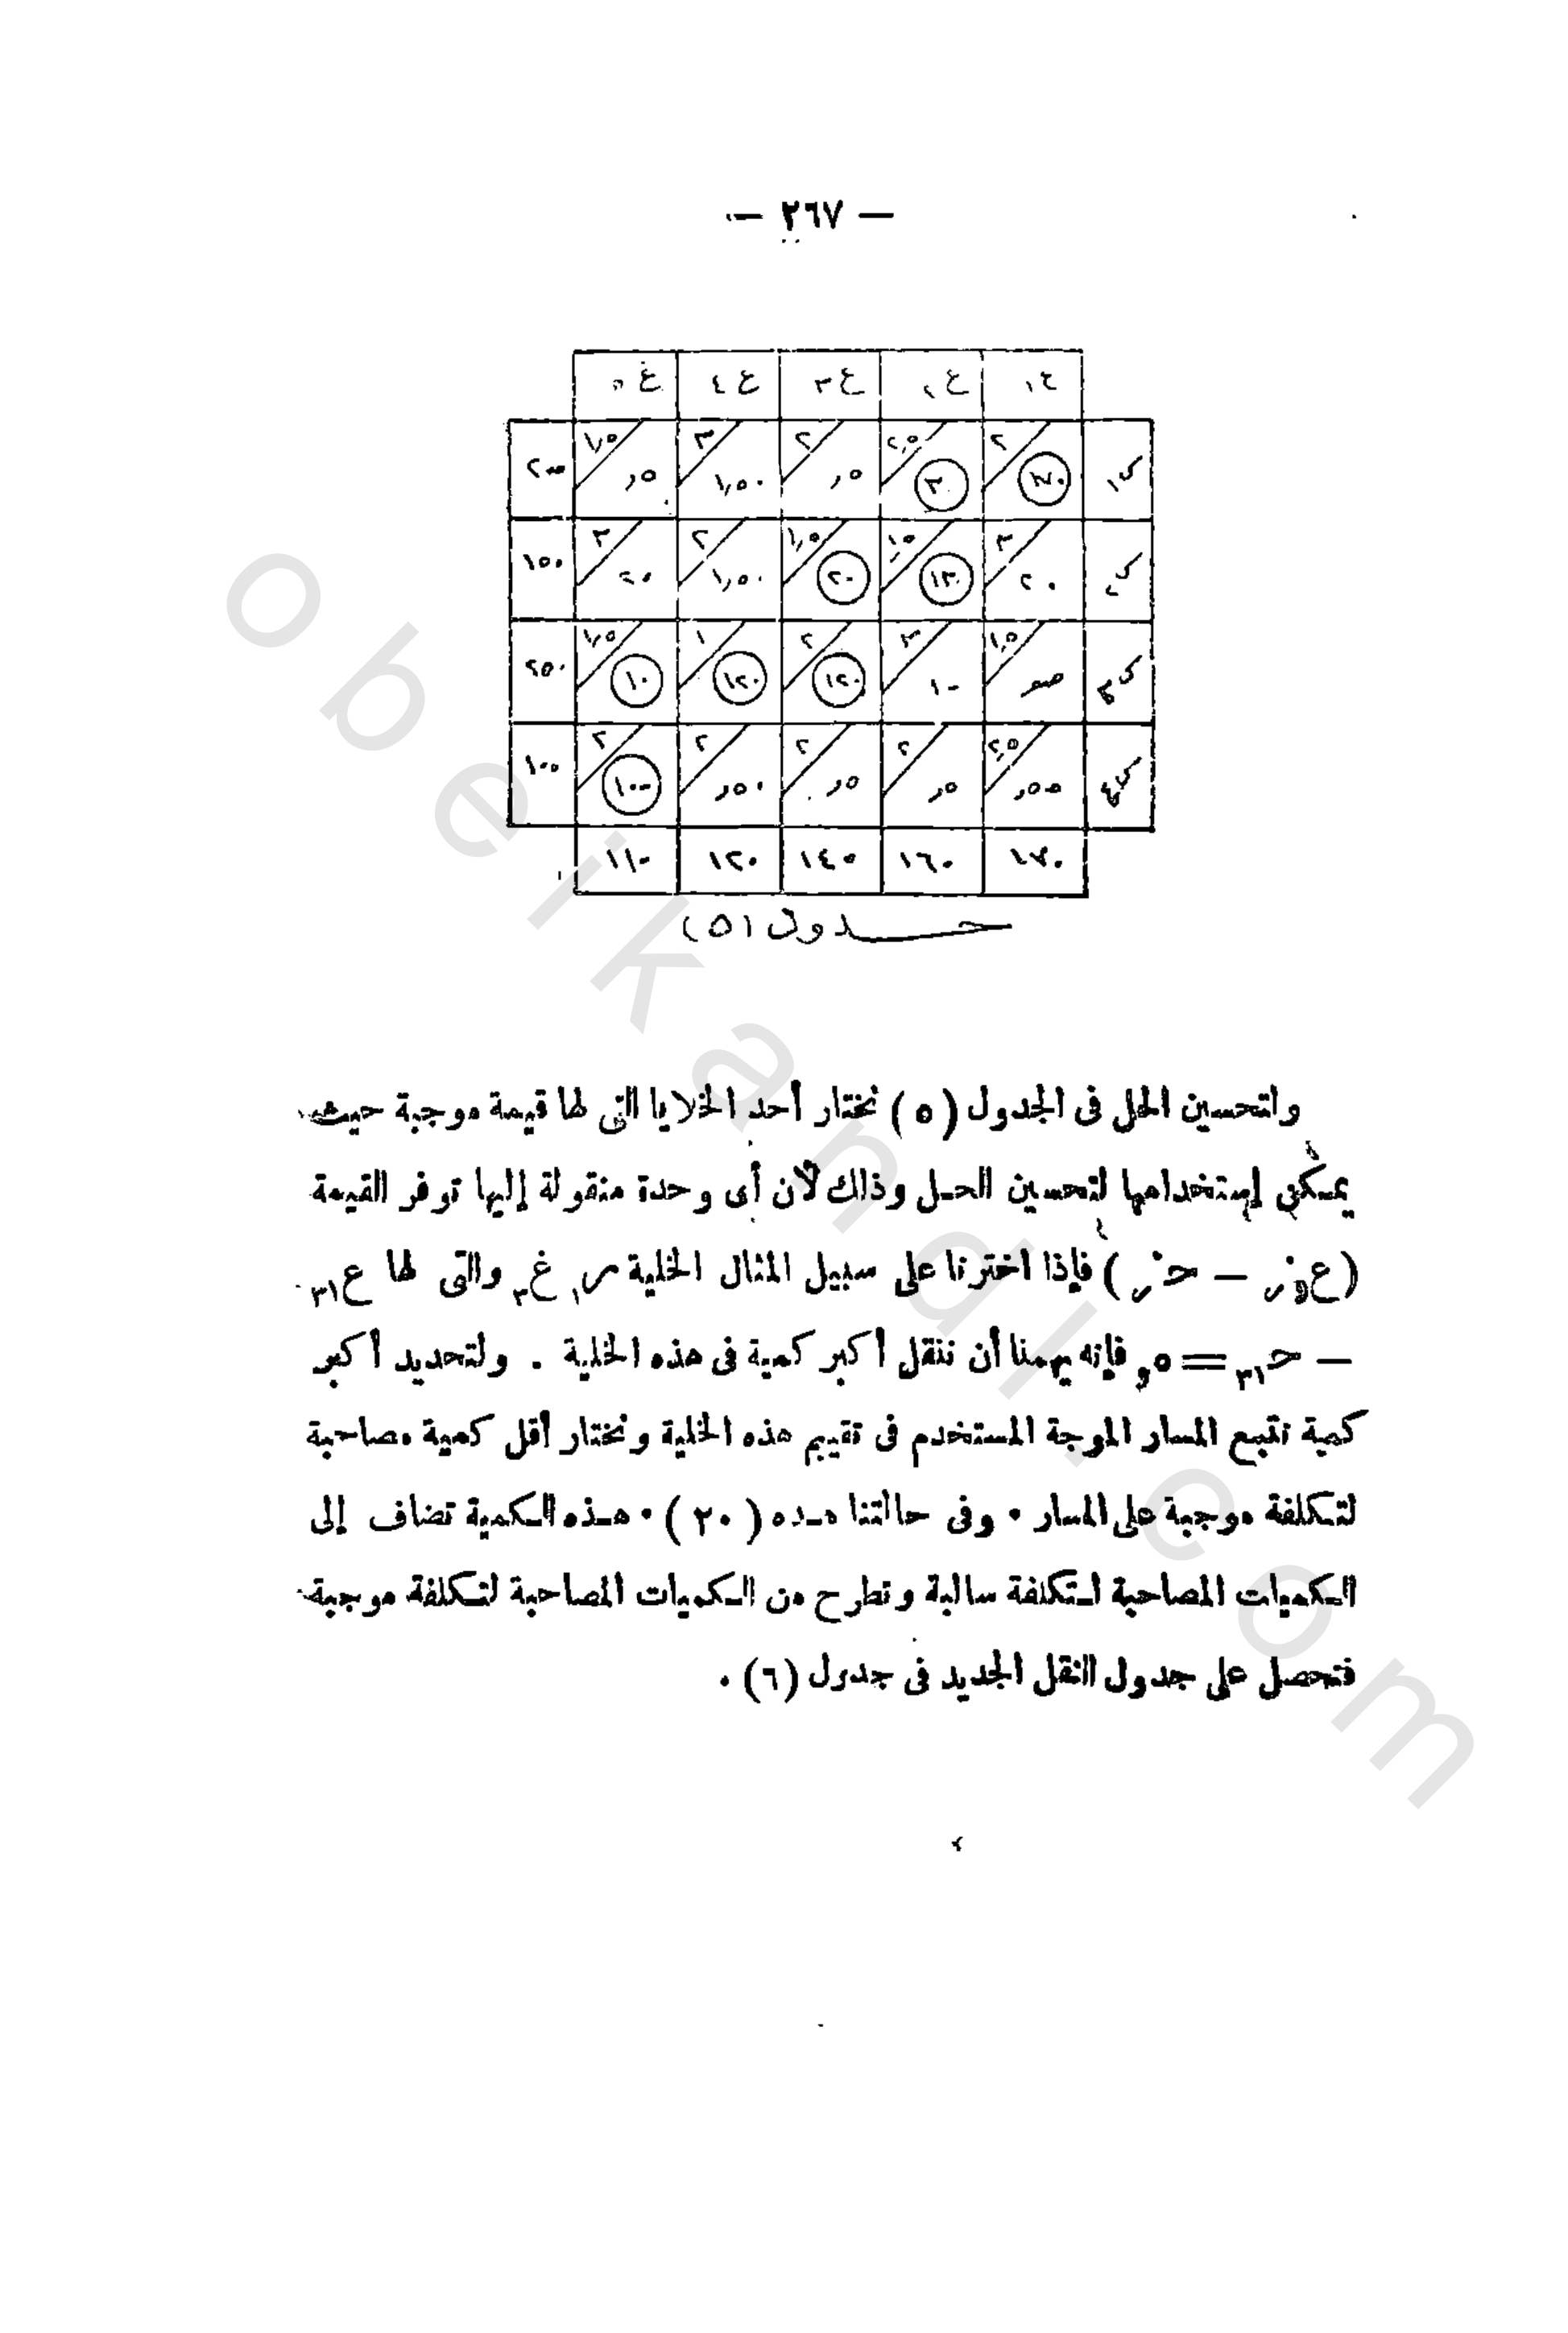 — ٢٦٧ —
ع١ ع٢ ع٣ ع٤ غ٥
٢ ١٧٠ ٢,٥ ٣٠ ٢ ,٥ ٣ ١,٥٠ ١,٥ ,٥ ٢٠٠
٣ ٢٠ ١,٥ ١٣٠ ١,٥ ٢٠ ٢ ١,٥٠ ٣ ٢٠ ١٥٠
١,٥ صفر ٣ ١٠ ٢ ١٢٠ ١ ١٢٠ ١,٥ ١٠ ٢٥٠
٢,٥ ,٥٠ ٢ ,٥ ٢ ,٥ ٢ ,٥٠ ٢ ١٠٠ ١٠٠
١٧٠ ١٦٠ ١٤٠ ١٢٠ ١١٠
جدول (٥)
ولتحسين الحل فى الجدول (٥) نختار أحد الخلايا التى لها قيمة موجبة حيث
يمكن إستخدامها لتحسين الحل وذلك لأن أى وحدة منقولة إليها توفر القيمة
فإذا اخترنا على سبيل المثال الخلية م١ غ٣ والتى لها ع٣١
— ح٣١ = ٥و فإنه يهمنا أن ننقل أكبر كمية فى هذه الخلية . ولتحديد أكبر
كمية نتبع المسار الموجة المستخدم فى تقييم هذه الخلية ونختار أقل كمية مصاحبة
لتكلفة موجبة على المسار . وفى حالتنا هذه (٢٠) . هذه الكمية تضاف إلى
الكميات المصاحبة لتكلفة سالبة وتطرح من الكميات المصاحبة لتكلفة موجبة
فتحصل على جدول النقل الجديد فى جدول (٦) .
obeikandl.com